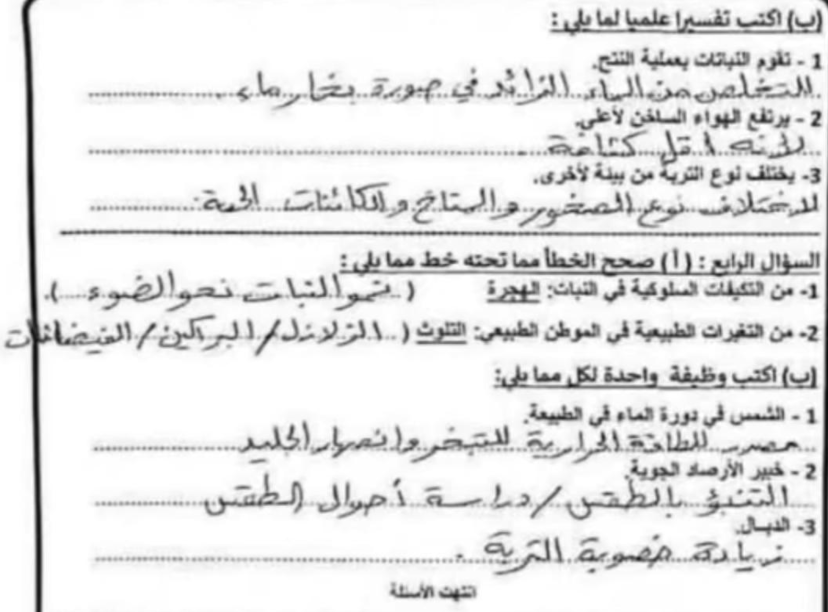 (ب) اكتب تفسيرا علميا لما يلي :
1 - تقوم النباتات بعملية النتح.
للتخلص من الماء الزائد في صورة بخار ماء.
2 - يرتفع الهواء الساخن لأعلى.
لأنه أقل كثافة
3- يختلف نوع التربة من بيئة لأخرى.
لاختلاف نوع الصخور والمناخ والكائنات الحية.
السؤال الرابع : (أ) صحح الخطأ مما تحته خط مما يلي :
1- من التكيفات السلوكية في النبات: الهجرة (نمو النبات نحو الضوء).
2- من التغيرات الطبيعية في الموطن الطبيعي: التلوث (الزلازل / البراكين / الفيضانات
(ب) اكتب وظيفة واحدة لكل مما يلي:
1 - الشمس في دورة الماء في الطبيعة.
مصدر للطاقة الحرارية للتبخر وانصهار الجليد
2 - خبير الأرصاد الجوية.
التنبؤ بالطقس / دراسة أحوال الطقس
3- الدبال.
زيادة خصوبة التربة.
انتهت الأسئلة